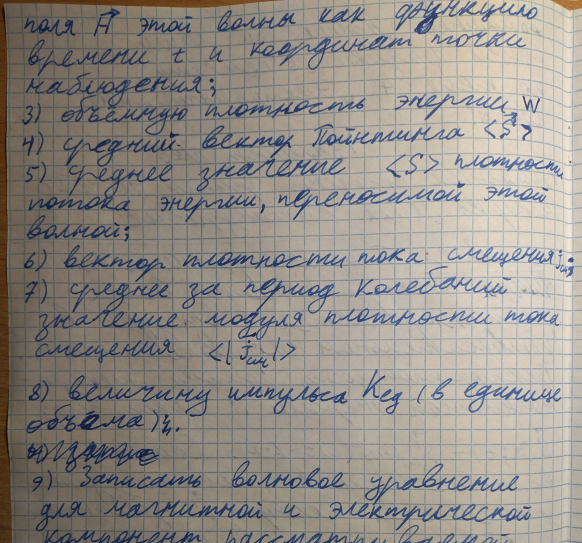 поля H⃗ этой волны как функцию
времени t и координат точки
наблюдения;
3) объемную плотность энергии W
4) средний вектор Пойнтинга <S⃗>
5) среднее значение <S> плотности
потока энергии, переносимой этой
волной;
6) вектор плотности тока смещения jсм;
7) среднее за период колебаний
значение модуля плотности тока
смещения <|jсм|>
8) величину импульса Kед (в единице
объёма);.
9) Записать волновое уравнение
для магнитной и электрической
компонент рассматриваемой